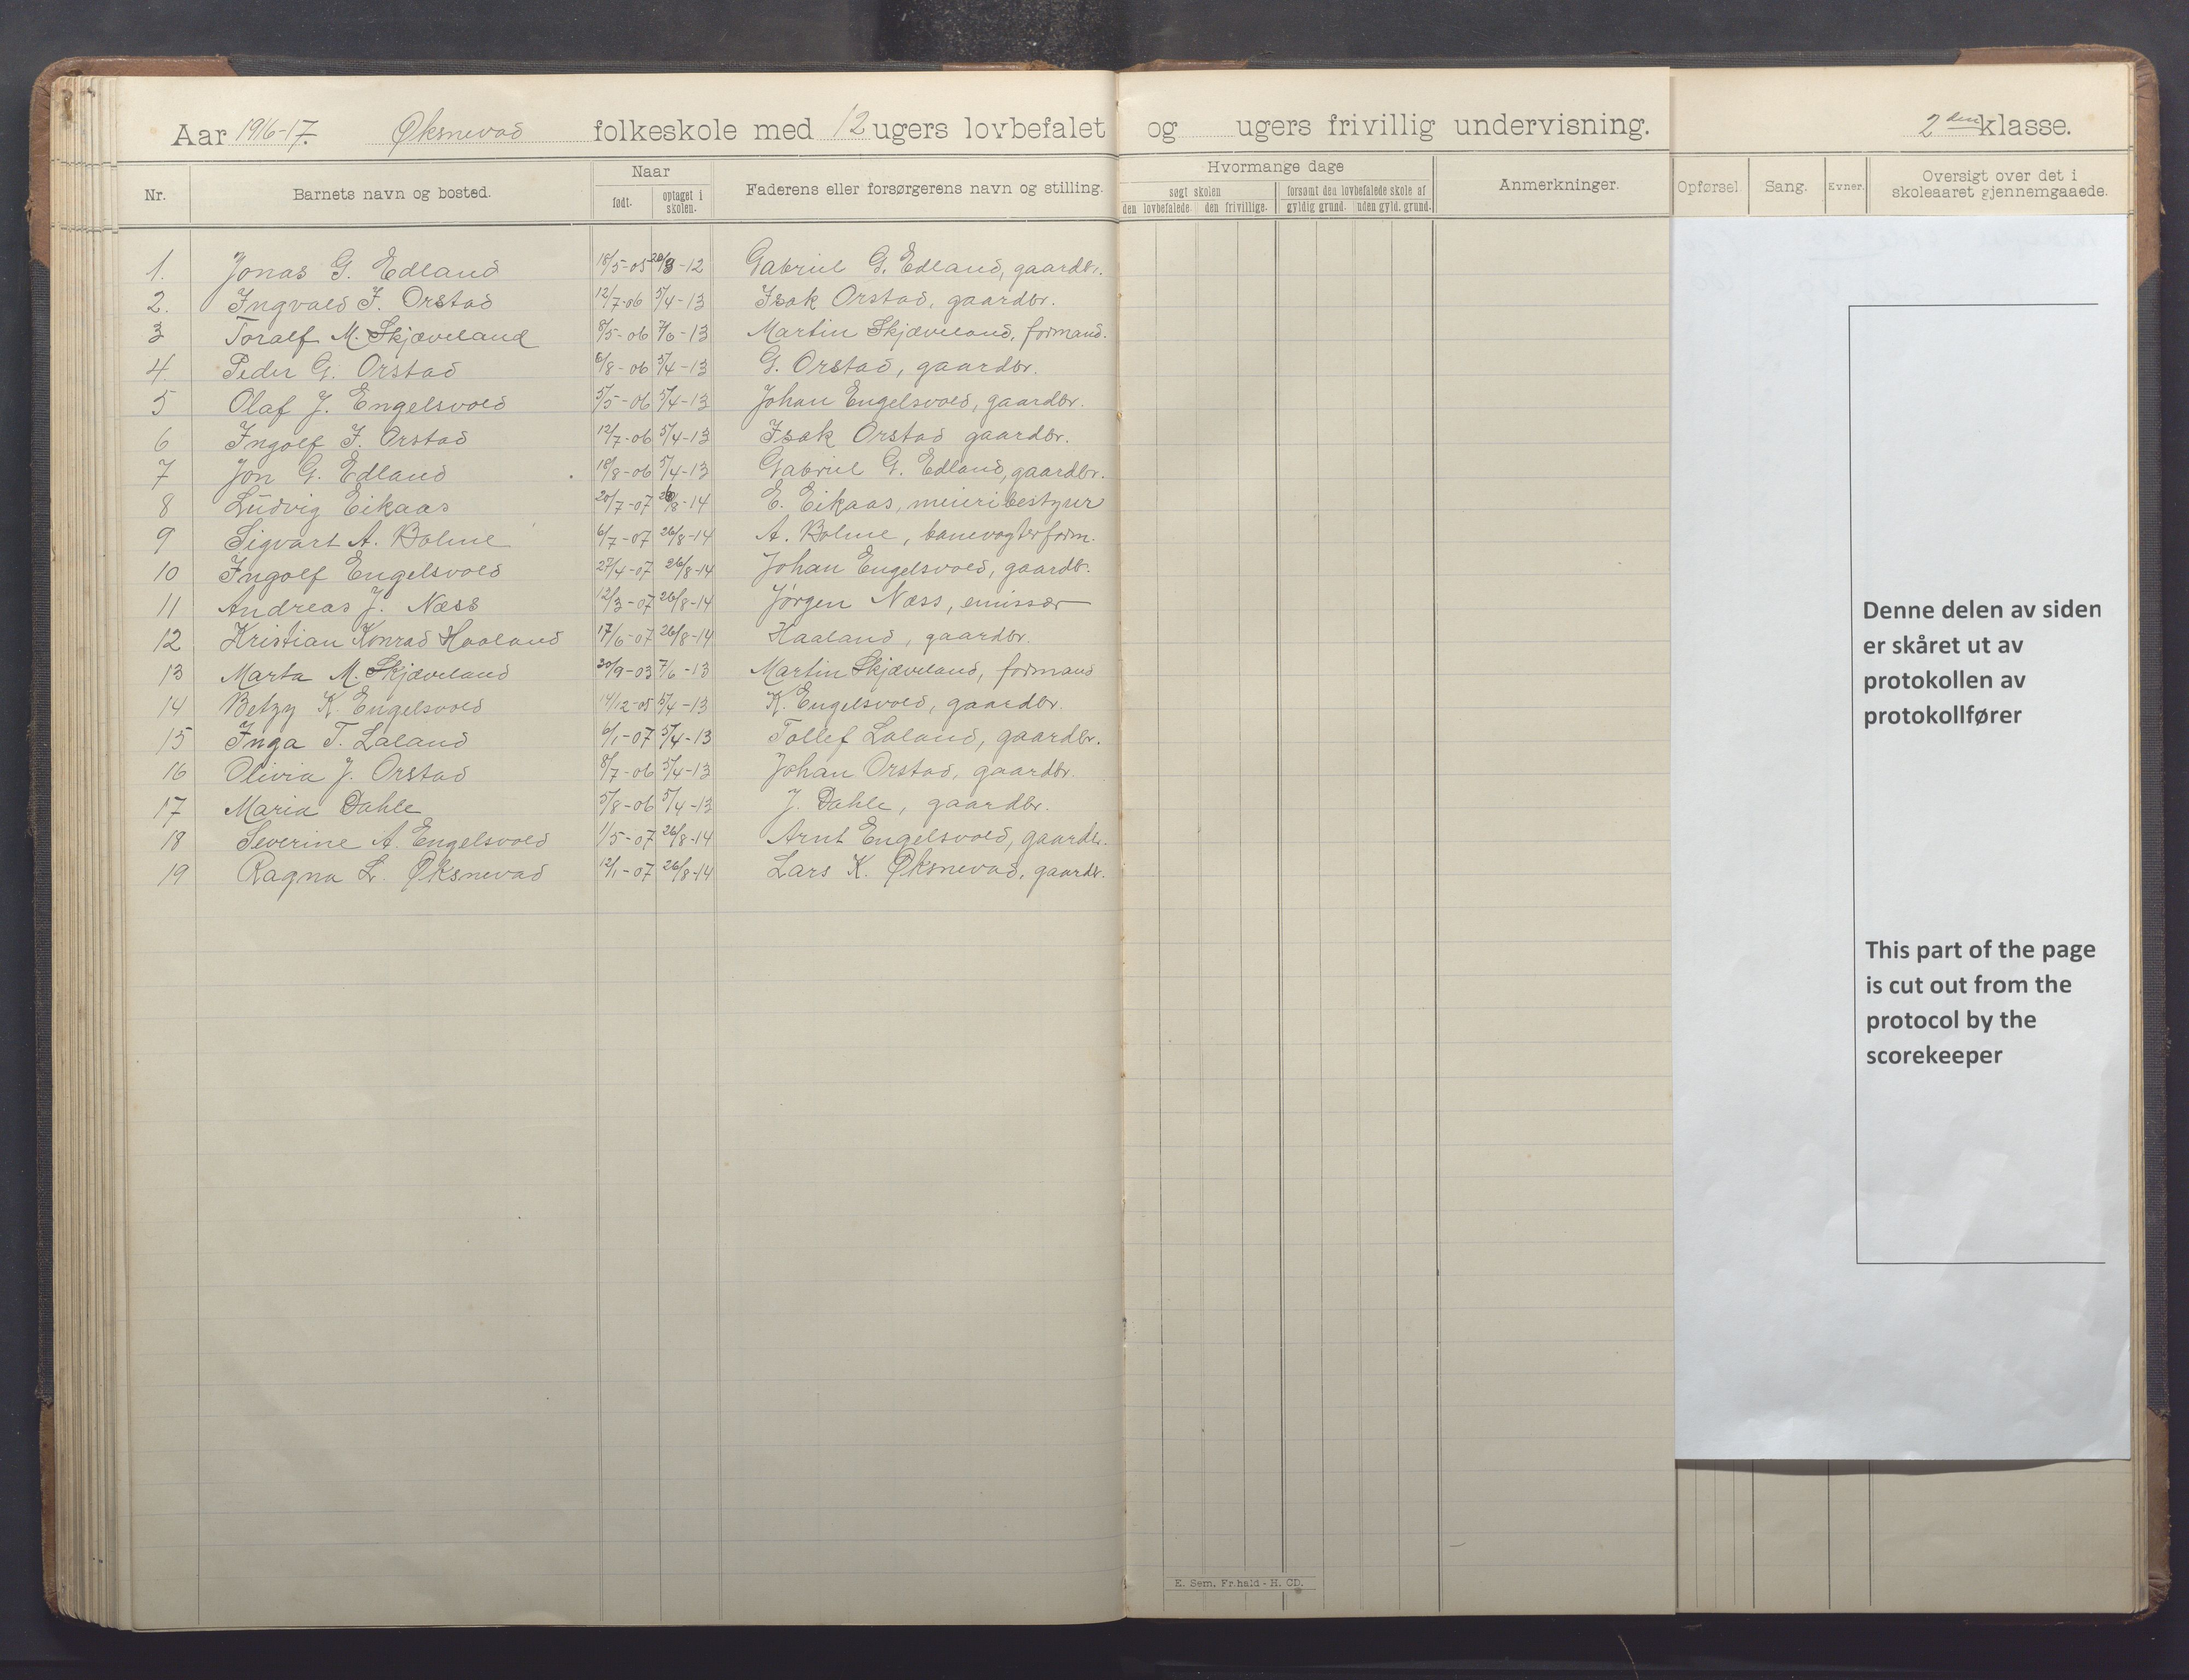 Aar 1916-17. Øksnevad folkeskole med 12 ugers lovbefalet og ugers frivillig undervisning. 2den klasse.
Nr. Barnets navn og bosted. Naar født. optaget i skolen. Faderens eller forsørgerens navn og stilling. Hvormange dage søgt skolen den lovbefalede. den frivillige. forsømt den lovbefalede skole af gyldig grund. uden gyld. grund. Anmerkninger. Opførsel Sang. Evner. Oversigt over det i skoleaaret gjennemgaaede.
1. Jonas G. Edland 18/5-05 /8-12 Gabriel G. Edland, gaardbr.
2. Ingvald I. Orstad 12/7-06 5/4-13 Isak Orstad, gaardbr.
3 Toralf M. Skjæveland 8/5-06 7/6-13 Martin Skjæveland, formand.
4. Peder G. Orstad 6/8-06 5/4-13 G. Orstad, gaardbr.
5 Olaf J. Engelsvold 5/5-06 5/4-13 Johan Engelsvold, gaardbr.
6 Ingolf I. Orstad 12/7-06 5/4-13 Isak Orstad gaardbr.
7 Jon G. Edland 18/8-06 5/4-13 Gabriel G. Edland, gaardbr.
8 Ludvig Eikaas 20/7-07 26/8-14 E. Eikaas, meieribestyrer
9 Sigvart A. Bolme 6/7-07 26/8-14 A. Bolme, banevogterform.
10 Ingolf Engelsvold 27/4-07 26/8-14 Johan Engelsvold, gaardb.
11 Andreas J. Næss 12/3-07 26/8-14 Jørgen Næss, emissær
12 Kristian Konrad Haaland 17/6-07 26/8-14 Haaland, gaardbr.
13 Marta M. Skjæveland 20/9-03 7/6-13 Martin Skjæveland, formand
14 Betzy K. Engelsvold 14/12-05 5/4-13 K. Engelsvold, gaardbr.
15 Inga T. Laland 6/1-07 5/4-13 Tollef Laland, gaardbr.
16 Olivia J. Orstad 8/7-06 5/4-13 Johan Orstad, gaardbr.
17 Maria Dahle 5/8-06 5/4-13 J. Dahle, gaardbr.
18 Severine A. Engelsvold 1/5-07 26/8-14 Arnt Engelsvold, gaardbr.
19 Ragna L. Øksnevad 12/1-07 26/8-14 Lars K. Øksnevad, gaardbr.
E. Sem, Fr.hald - H. CD.
Denne delen av siden
er skåret ut av
protokollen av
protokollfører
This part of the page
is cut out from the
protocol by the
scorekeeper